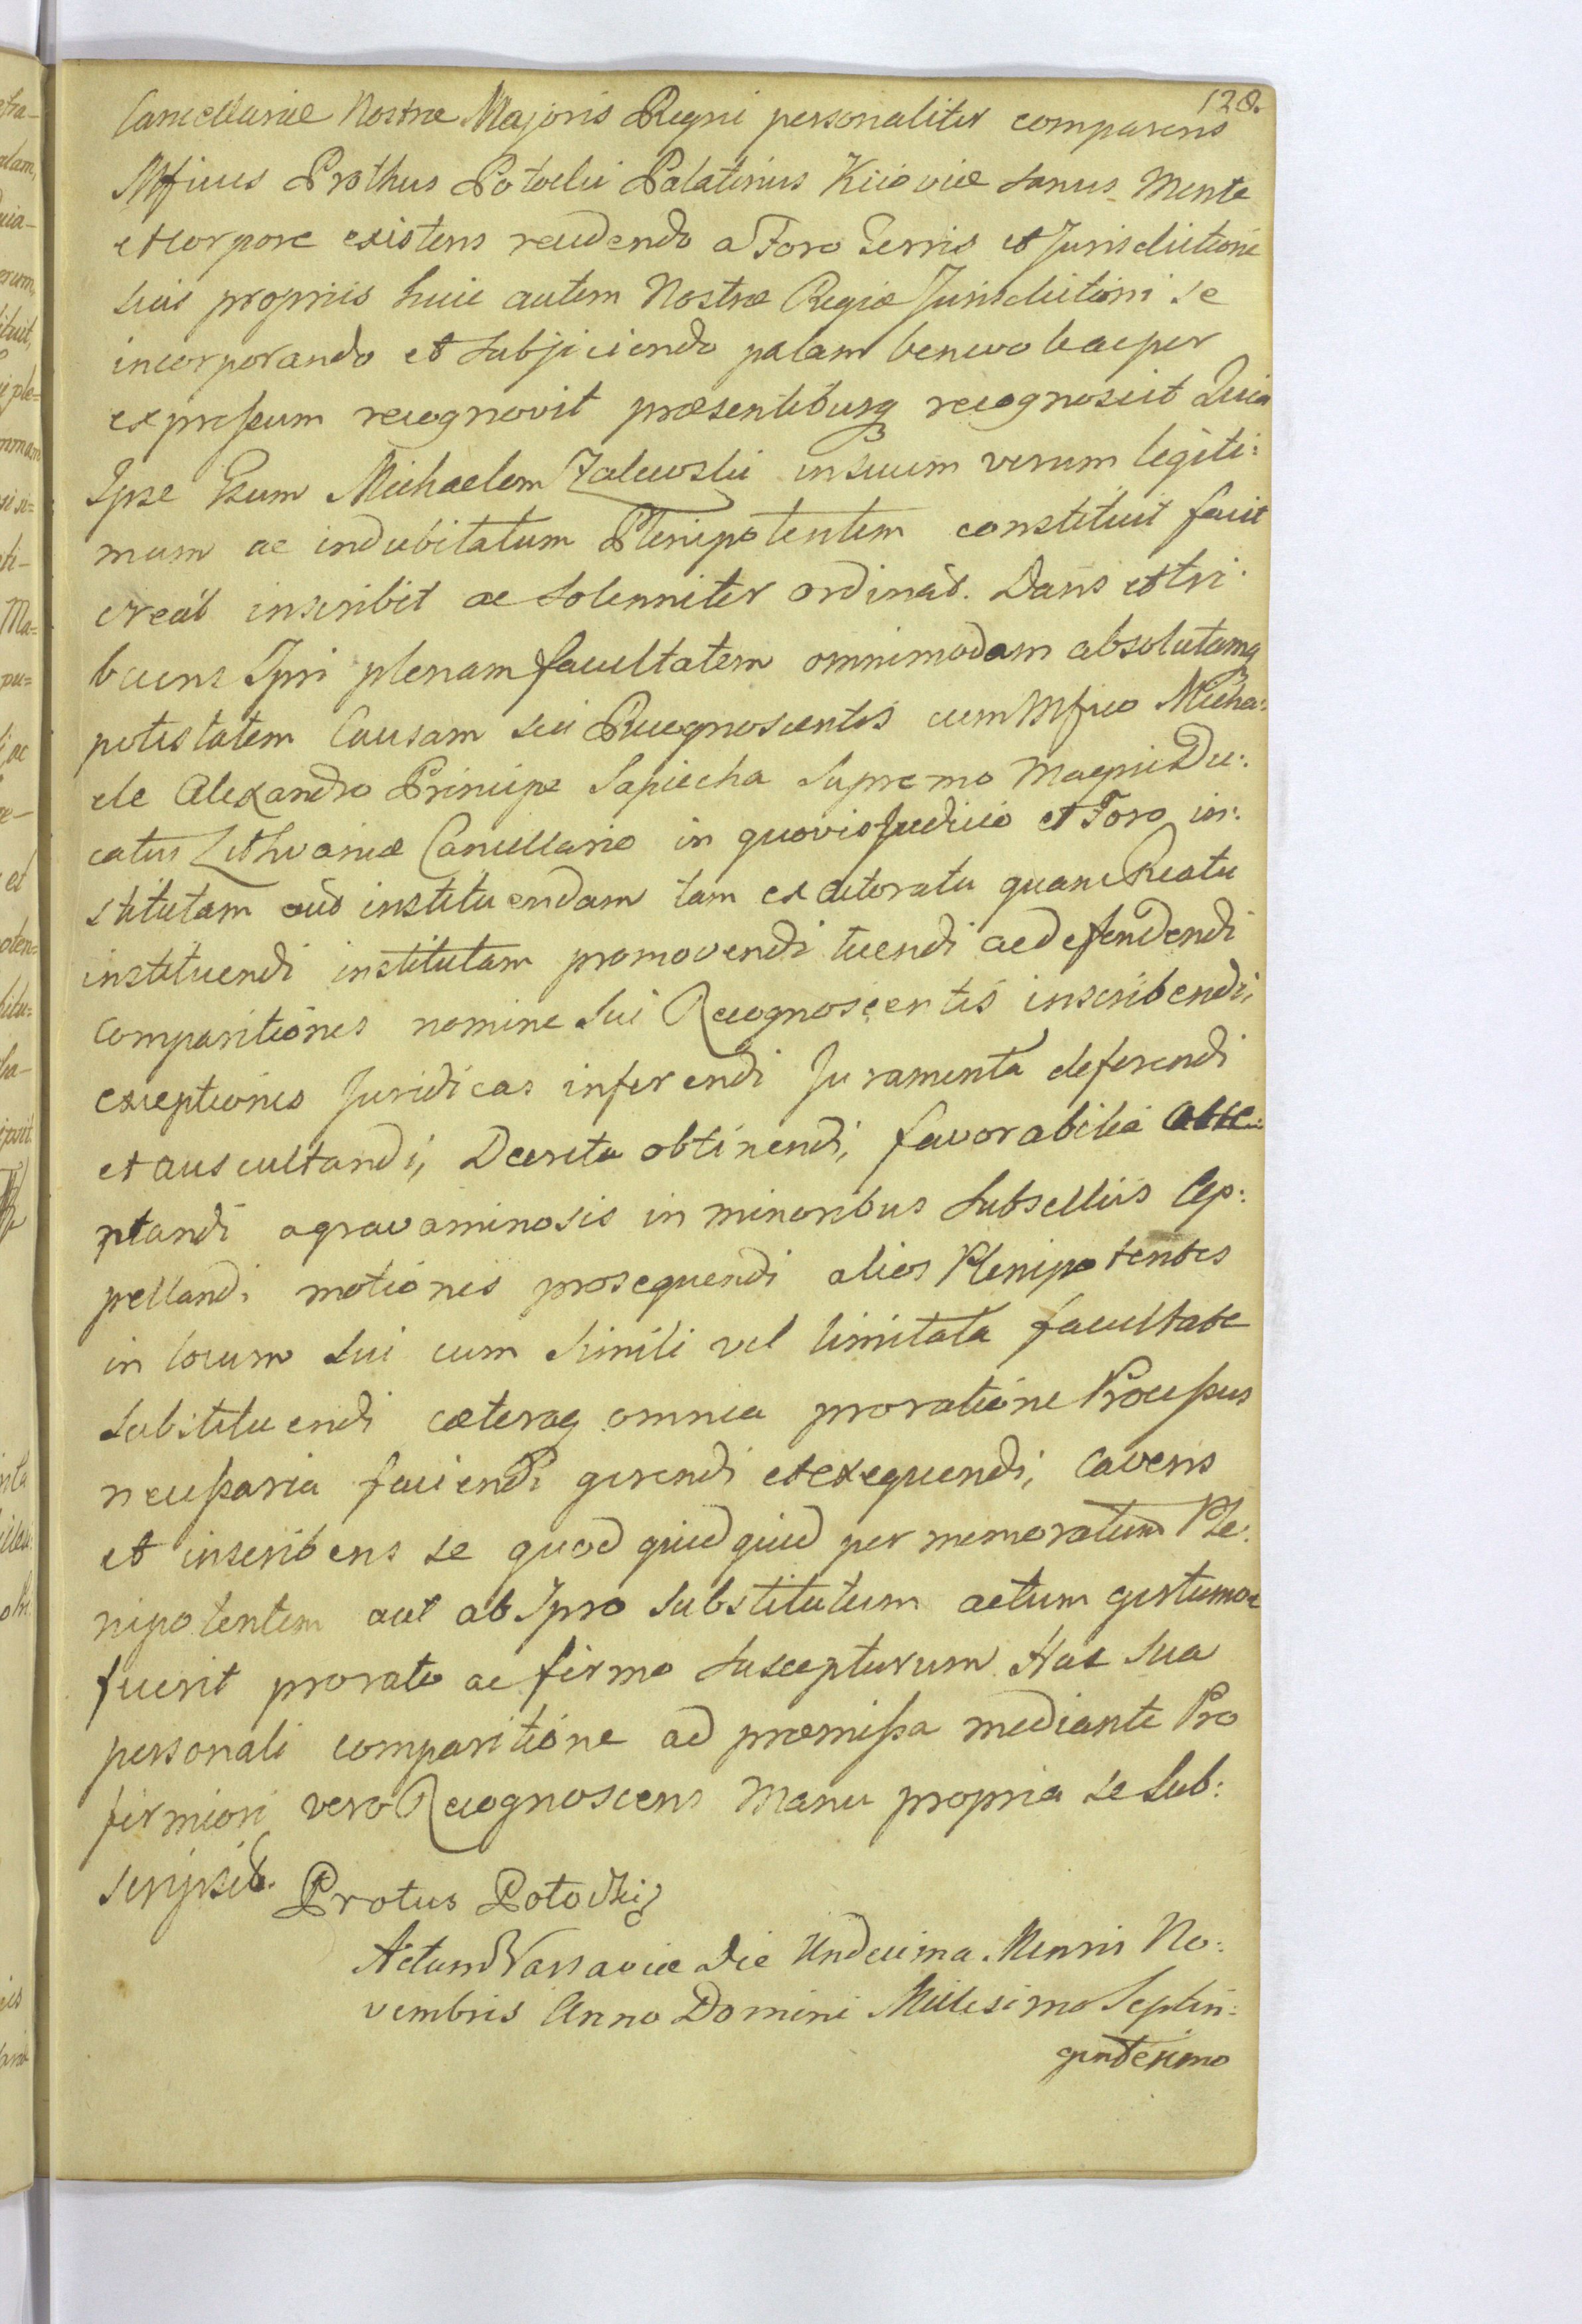 128.
Cancellariæ Nostræ Majoris Regni personaliter comparens
Mficus Prothus Potocki Palatinus Kijoviæ sanus Mente
et corpore existens recedendo a Foro Terris et Jurisdictione
suis propriis huic autem Nostræ Regiæ Jurisdictioni se
incorporando et subjiciendo palam benevole ac per
expressum recognovit præsentibusq recognoscit Quia
Ipse Gsum Michaelem Zalewski in suum verum legiti:
mum ac indubitatum Plenipotentem constituit facit
creat inscribit ac solenniter ordinat. Dans et tri:
buens Ipsi plenam facultatem omnimodam absolutamq
potestatem Causam sui Recognoscentis cum Mfico Micha:
ele Alexandro Principe Sapiecha Supremo Magni Du:
catus Lithvaniæ Cancellario in quovis Judicio et Foro in:
stitutam aut instituendam tam ex actoratu quam Reatu
instituendi institutam promovendi tuendi ac defendendi
comparitiones nomine sui Recognoscentis inscribendi,
exceptiones Juridicas inferendi Juramenta deferendi
et auscultandi, Decreta obtinendi, favorabilia acce:
ptandi agravaminosis in minoribus Subselliis Ap:
pellandi motiones prosequendi alios Plenipotentes
in locum sui cum simili vel limitata facultate
substituendi cæteraq omnia pro ratione Processus
necessaria faciendi gerendi et exequendi, Cavens
et inscribens se quod quidquid per memoratum Ple:
nipotentem aut ab Ipso substitutum actum gestumve
fuerit pro rato ac firmo suscepturum Hac sua
personali comparitione ad præmissa mediante Pro
firmiori vero Recognoscens Manu propria se sub:
scripsit. Protus Potocki
Actum Varsaviæ Die Undecima Mensis No:
vembris Anno Domini Millesimo Septin:
gentesimo